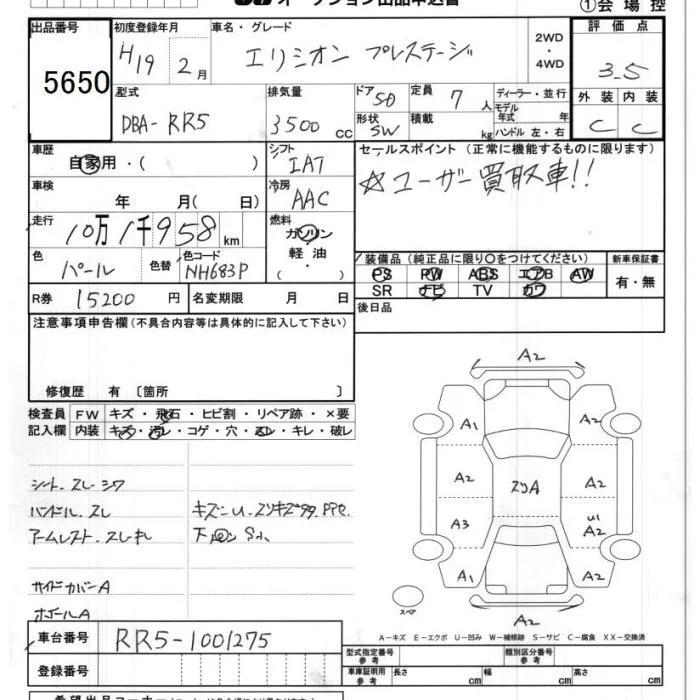 オークション出品申込書
①会場控
出品番号
5650
初度登録年月
H19 2月
車名・グレード
エリシオン プレステージ
2WD
・
4WD
評価点
3.5
外装 内装
C C
型式
DBA-RR5
排気量
3500 cc
ドア 5D
形状 SW
定員 7 人
積載 kg
ディーラー・並行
モデル年式 年
ハンドル 左・右
車歴
自家用・( )
シフト
IAT
セールスポイント (正常に機能するものに限ります)
☆ユーザー買取車!!
車検
年 月( 日)
冷房
AAC
走行
10万1千958km
燃料
ガソリン
軽油
( ・ )
色
パール
色替
色コード
NH683P
装備品 (純正品に限り○をつけてください)
PS PW ABS エアB AW
SR ナビ TV カワ
新車保証書
有・無
R券 15200円
名変期限 月 日
後日品
注意事項申告欄 (不具合内容等は具体的に記入して下さい)
修復歴 有 〔箇所 〕
検査員 FW キズ・飛石・ヒビ割・リペア跡・×要
記入欄 内装 キズ・汚レ・コゲ・穴・スレ・キレ・破レ
シート、スレシワ
ハンドル、スレ
アームレスト、スレキレ
サイドカバーA
ホイールA
キズ
A2
A1 A2
A2 スリA A2
A3 U1 A2
A1 A2
A2
スペア
A-キズ E-エクボ U-凹み W-補修跡 S-サビ C-腐食 XX-交換済
車台番号 RR5-1001275
登録番号
型式指定番号 参考
類別区分番号 参考
車庫証明用 参考 長さ cm 幅 cm 高さ cm